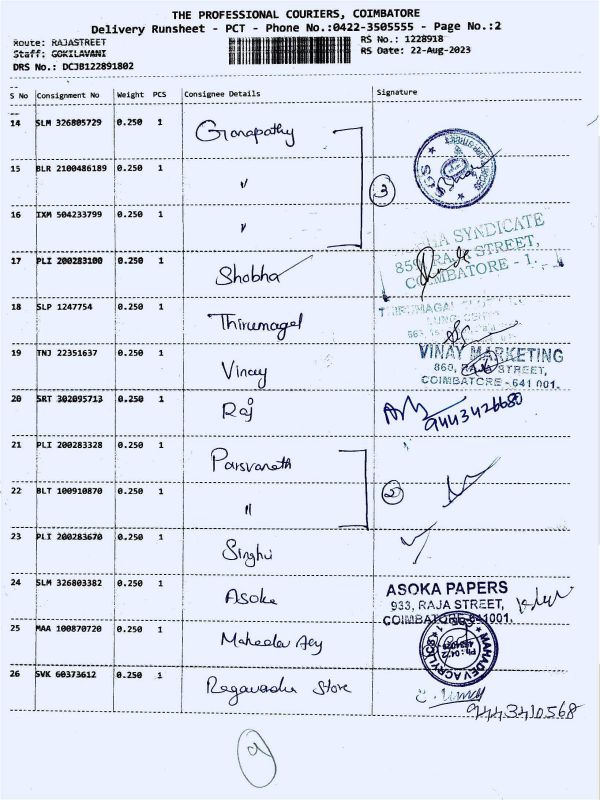 THE PROFESSIONAL COURIERS, COIMBATORE
Delivery Runsheet - PCT - Phone No.:0422-3505555 - Page No.:2
Route: RAJASTREET
RS No.: 1228918
Staff: GOKILAVANI
RS Date: 22-Aug-2023
DRS No.: DCJB122891802
S No Consignment No Weight PCS Consignee Details Signature
14 SLM 326805729 0.250 1 Ganapathy
15 BLR 2100486189 0.250 1 "
3
SGS
16 IXM 504233799 0.250 1 "
SYNDICATE
17 PLI 200283100 0.250 1 Shobha
859, RAJA STREET,
COIMBATORE - 1.
18 SLP 1247754 0.250 1 Thirumagal
19 TNJ 22351637 0.250 1 Vinay
VINAY MARKETING
860, RAJA STREET,
COIMBATORE - 641 001.
20 SRT 302095713 0.250 1 Raj
9443426680
21 PLI 200283328 0.250 1 Parsvanath
22 BLT 100910870 0.250 1 "
2
23 PLI 200283670 0.250 1 Singhvi
24 SLM 326803382 0.250 1 Asoka
ASOKA PAPERS
933, RAJA STREET,
COIMBATORE 641001.
25 MAA 100870720 0.250 1
MAHADEV ACRYLICS
26 SVK 60373612 0.250 1 Store
9443410568